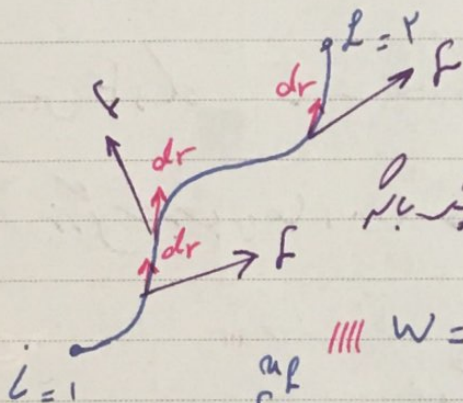 f = ۲
dr
F
F
dr
dr
F
W =
i = 1